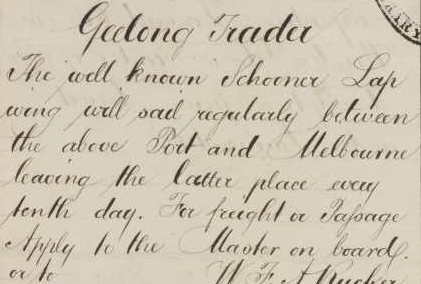 Geelong Trader
The well known Schooner Lap
wing will sail regularly between
the above Port and Melbourne
leaving the latter place every
tenth day. For freight or Passage
Apply to the Master on board.
or to W F A Rucker